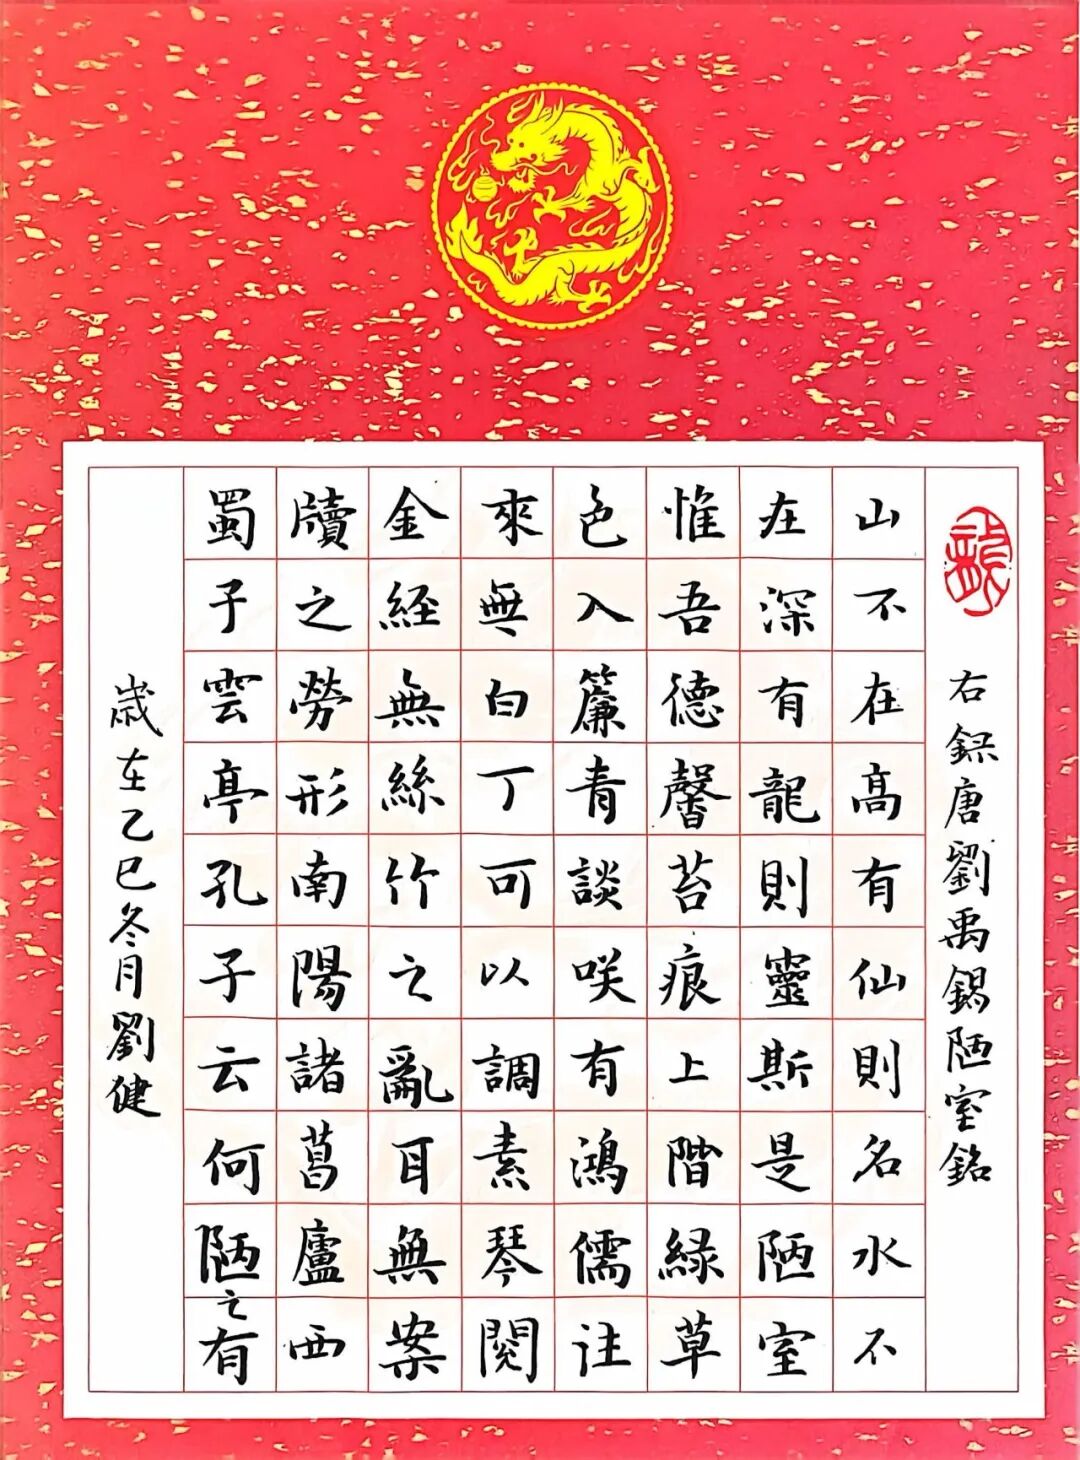 右錄唐劉禹錫陋室銘
山不在高有仙則名水不
在深有龍則靈斯是陋室
惟吾德馨苔痕上階緑草
色入簾青談咲有鴻儒往
來無白丁可以調素琴閱
金經無絲竹之亂耳無案
牘之勞形南陽諸葛廬西
蜀子雲亭孔子云何陋之有
歲在乙巳冬月劉健